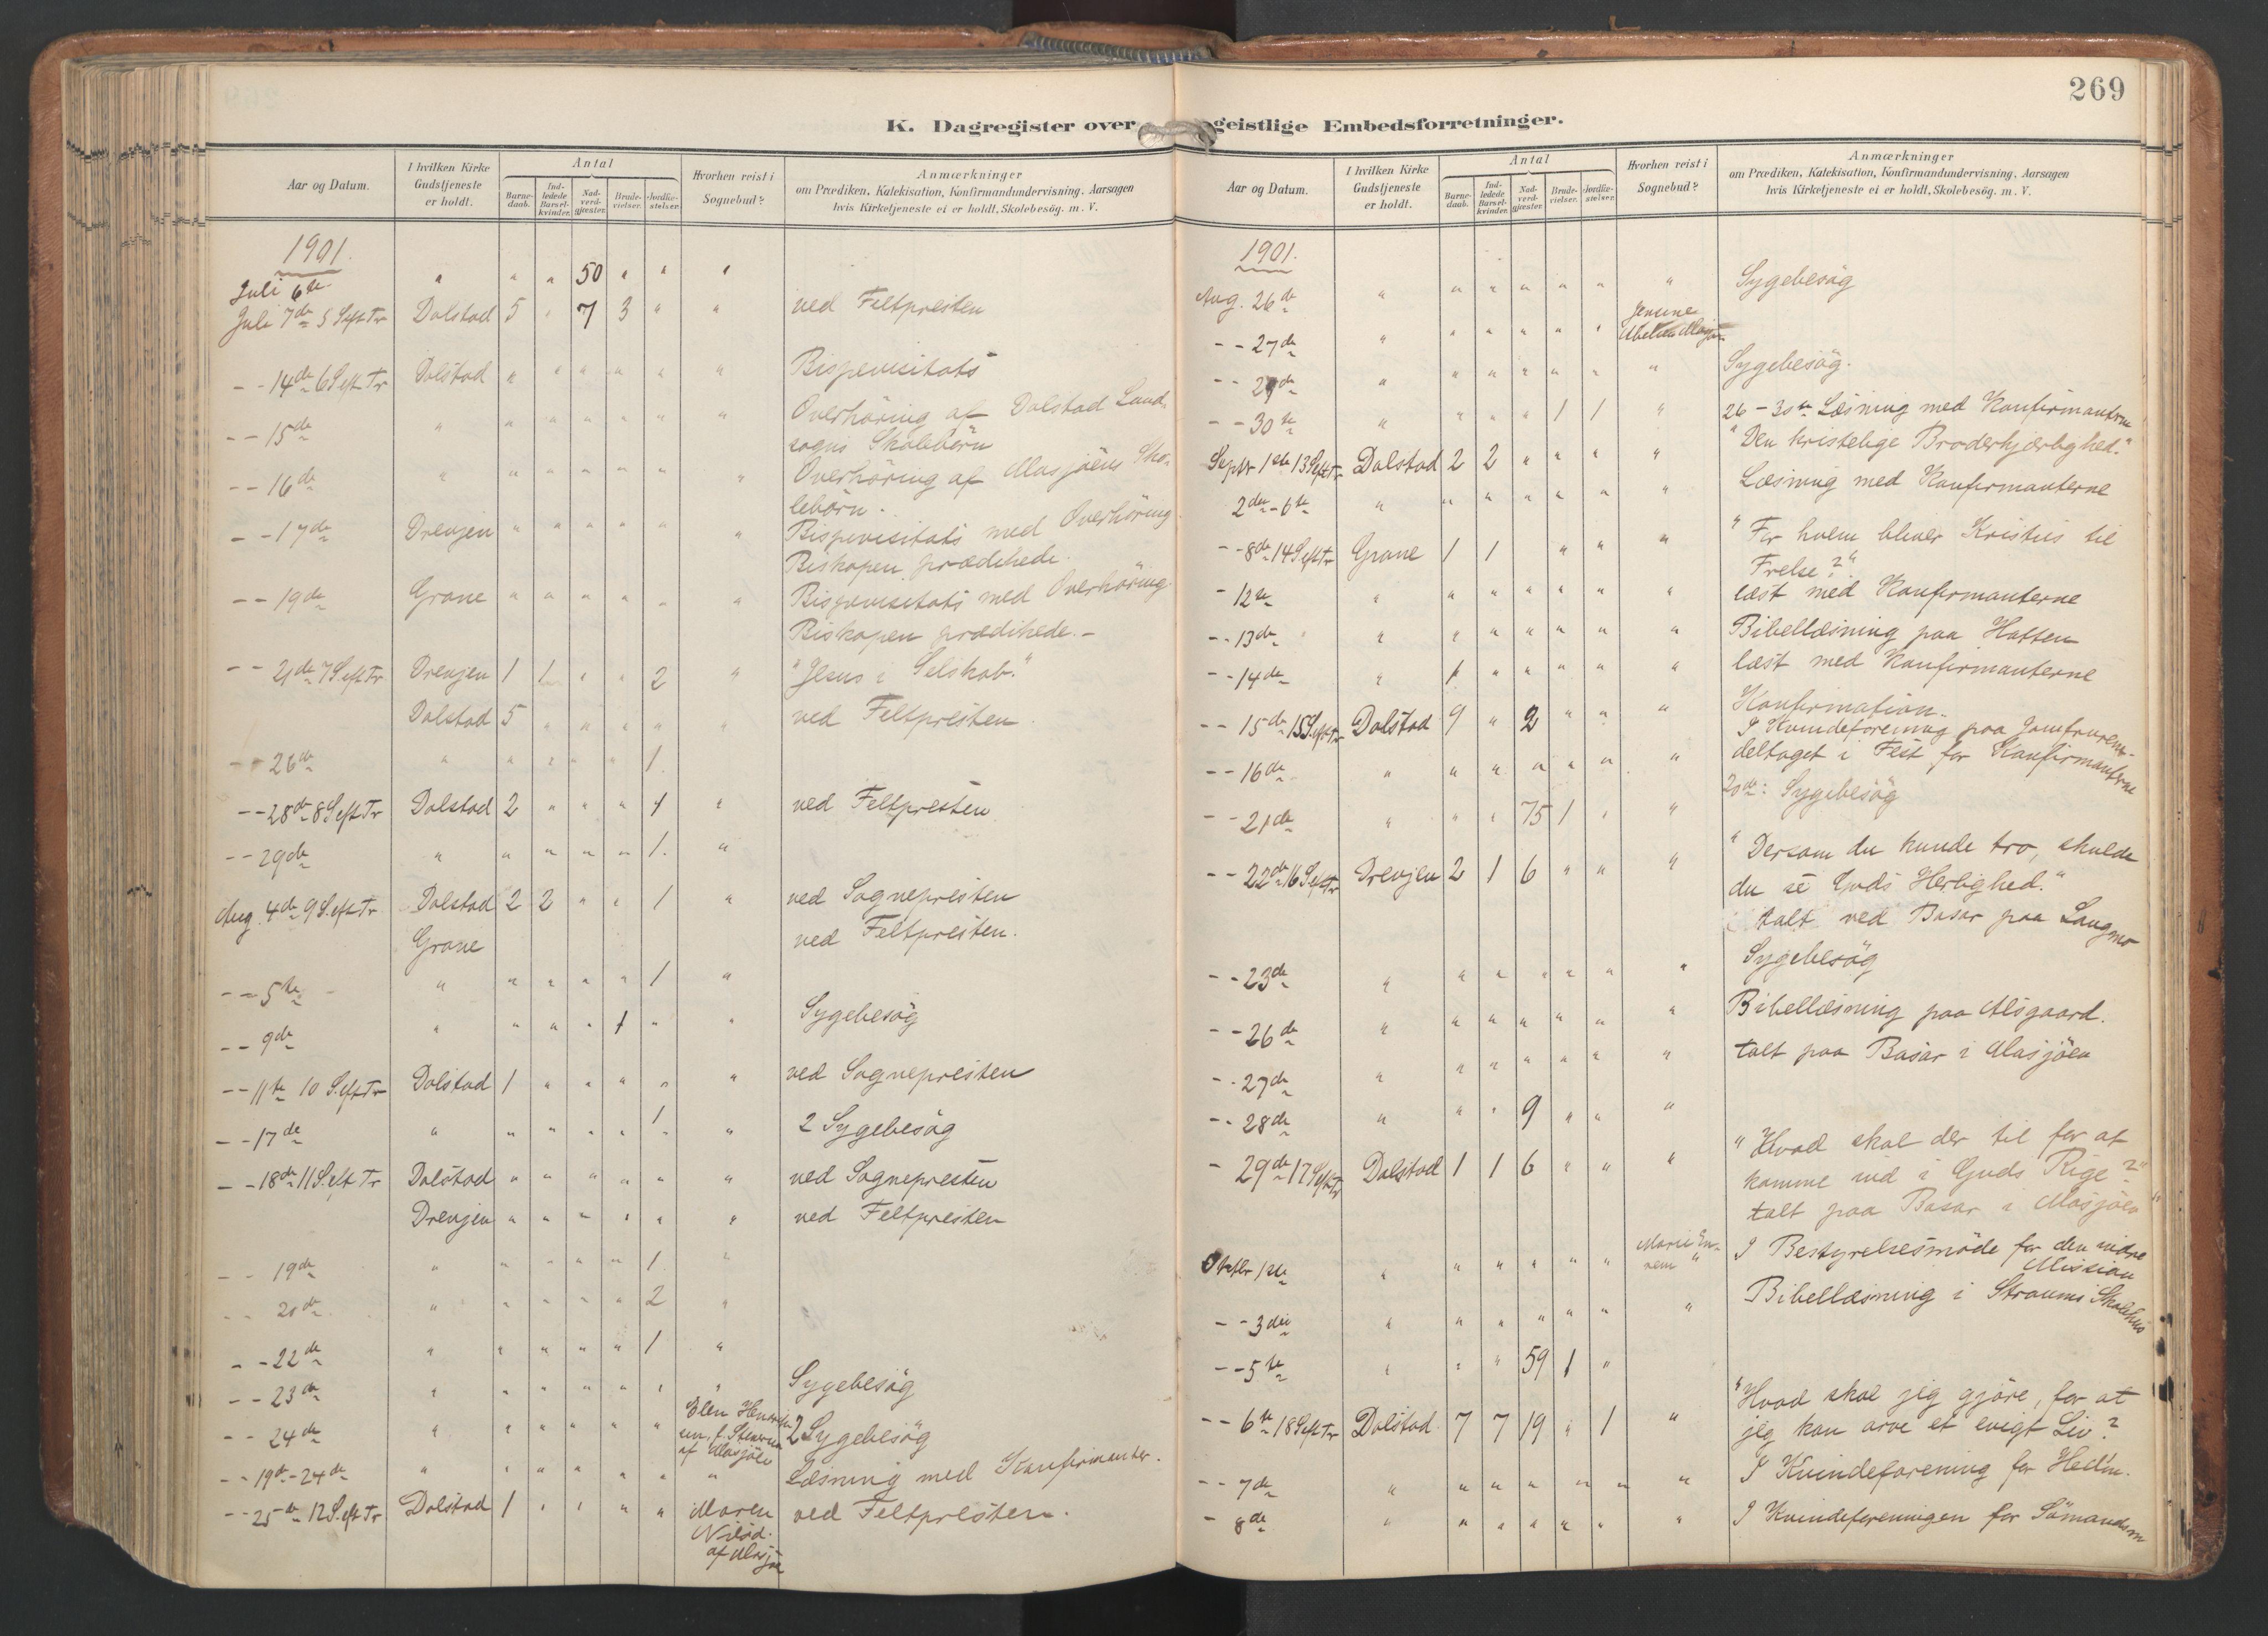 K. Dagregister over
Aar og Datum. I hvilken Kirke Gudstjeneste er holdt. Antal Barnedaab. Indledede Barselkvinder. Nadverdgjæster. Brudevielser. Jordfæstelser. Hvorhen reist i Sognebud? Anmærkninger om Prædiken, Katekisation, Konfirmandundervisning, Aarsagen hvis Kirketjeneste ei er holdt, Skolebesög. m. V.
1901.
Juli 6te. " " " 50 " " "
Juli 7de 5 S eft Tr Dolstad 5 " 7 3 " " ved Feltpresten
- - 14de 6 S eft Tr Dolstad " " " " " " Bispevisitats
- - 15de " " " " " " " Overhöring af Dolstad Land-
sogns Skolebörn
- - 16de " " " " " " " Overhöring af Mosjöens Sko-
lebörn.
- - 17de Drevjen " " " " " " Bispevisitats med Overhöring
Biskopen prædikede.
- - 19de Grane " " " " " " Bispevisitats med Overhöring.
Biskopen prædikede. -
- - 21de 7 S eft Tr Drevjen 1 1 " " 2 " "Jesus i Selskab."
Dolstad 5 " " " " " ved Feltpresten.
- - 26de " " " " " 1.
- - 28de 8 S eft Tr Dolstad 2 " " " 1 " ved Feltpresten
- - 29de " " " " " 1. "
Aug. 4de 9 S. eft Tr. Dolstad 2 2 " " 1 " ved Sognepresten
Grane ved Feltpresten.
- - 5te " " " " " 1 "
- - 9de " " " " 1 " " Sygebesög
- - 11te 10 S. eft Tr Dolstad 1 " " " " " ved Sognepresten
- - 17de " " " " " 1 " 2 Sygebesög
- - 18de 11 S. eft Tr Dolstad " " " " " " ved Sognepresten
Drevjen " " " " " " ved Feltpresten
- - 19de " " " " " 1 "
- - 20de " " " " " 2 "
- - 22de " " " " " 1 "
- - 23de " " " " " " " Sygebesög
- - 24de " " " " " " Elen
af Mosjöen 2 Sygebesög
- - 19de - 24de " " " " " " " Læsning med Konfirmanter.
- - 25de 12 S. eft Tr Dolstad 1 " " " " Maren
af Mosjöen ved Feltpresten.
269
geistlige Embedsforretninger.
Aar og Datum. I hvilken Kirke Gudstjeneste er holdt. Antal Barnedaab. Indledede Barselkvinder. Nadverdgjæster. Brudevielser. Jordfæstelser. Hvorhen reist i Sognebud? Anmærkninger om Prædiken, Katekisation, Konfirmandundervisning, Aarsagen hvis Kirketjeneste ei er holdt, Skolebesög. m. V.
1901.
Aug. 26de " " " " " " " Sygebesög
- - 27de " " " " " "
- - 29de " " " " " " " Sygebesög.
- - 30te " " " " 1 1 " 26 - 30te Læsning med Konfirmanterne
Septbr 1ste 13 S eft Tr Dolstad 2 2 " " " " "Den kristelige Broderkjærlighed."
2den - 6te " " " " " " " Læsning med Konfirmanterne
- - 8de 14 S eft Tr Grane 1 1 " " " "For hvem bliver Kristus til
Frelse?"
- 12te " " " " " " " læst med Konfirmanterne
- - 13de " " " " " " " Bibellæsning paa Hatten
- - 14de " 1 " " " " " læst med Konfirmanterne
- - 15de 15 S. eft Tr Dolstad 9 " 2 " " " Konfirmation.
I Kvindeforening paa
- - 16de " " " " " " " deltaget i Fest for Konfirmanterne
20de: Sygebesög
- - 21de " " " 75 1 " "
- - 22de 16 S eft Tr Drevjen 2 1 6 " " " "Dersom du kunde tro, skulde
du se Guds Herlighed."
talt ved Basar paa Langmo
- - 23de " " " " " " " Sygebesög
- - 26de " " " " " " " Bibellæsning paa Alsgaard.
- - 27de " " " " " " " talt paa Basar i Mosjöen
- - 28de " " " 9 " " "
- 29de 17 S eft Tr Dolstad 1 1 6 " " " "Hvad skal der til for at
komme ind i Guds Rige?"
talt paa Basar i Mosjöen
Oktbr 1ste " " " " " " Marie I Bestyrelsesmöde for den indre
Mission
- - 3die " " " " " " " Bibellæsning i Straums Skolehus
- - 5te " " " 59 1 "
- - 6te 18 S eft Tr Dolstad 7 7 19 " 1 " "Hvad skal jeg gjöre, for at
jeg kan arve et evigt Liv?
- - 7de " " " " " " " I Kvindeforening for Hedn.
- 8de " " " " " " " I Kvindeforeningen for Sömandsm